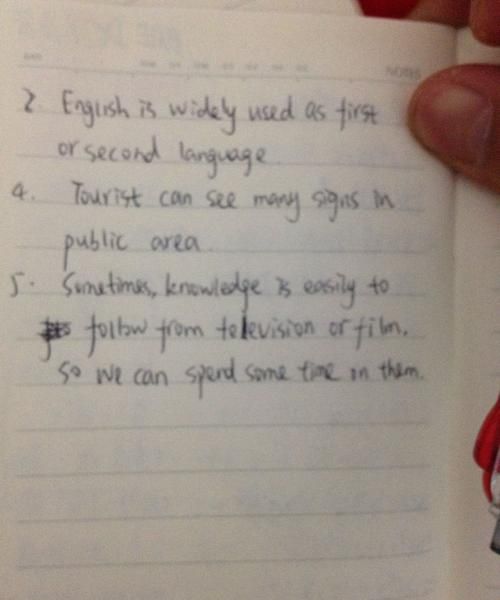 NOTES
2. English is widely used as first
or second language
4. Tourist can see many signs in
public area.
5. Sometimes, knowledge is easily to
follow from television or film.
So we can spend some time on them.